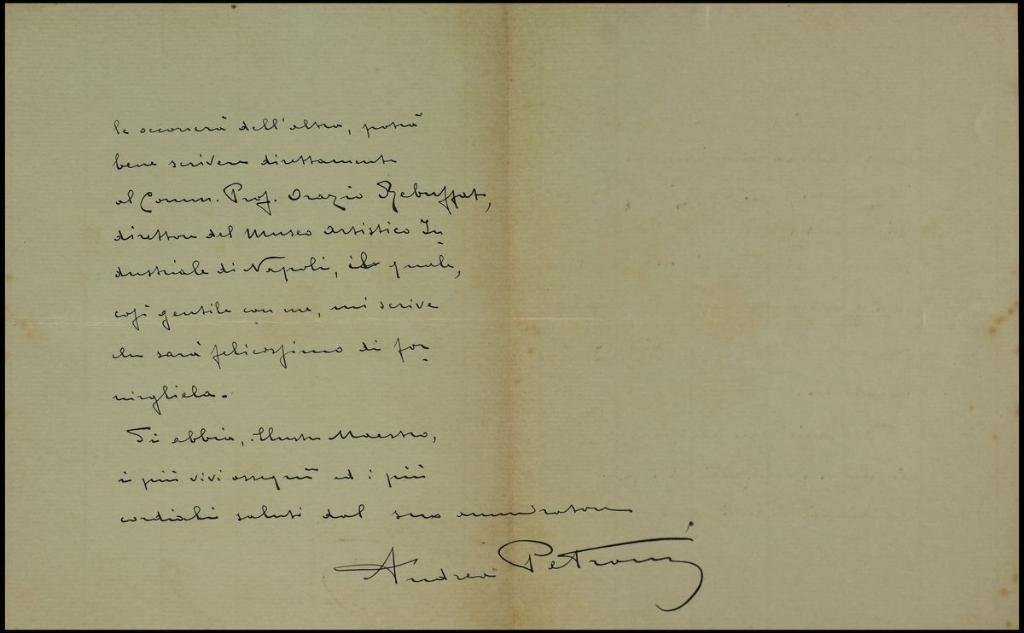 le occorrerà dell'altra, potrà
bene scrivere direttamente
al Comm. Prof. Orazio Rebuffat,
direttore del Museo Artistico In-
dustriale di Napoli, il quale,
così gentile con me, mi scrive
che sarà felicissimo di for-
nirgliela.
Si abbia, Illustre Maestro,
i più vivi ossequii ed i più
cordiali saluti dal suo ammiratore
Andrea Petroni